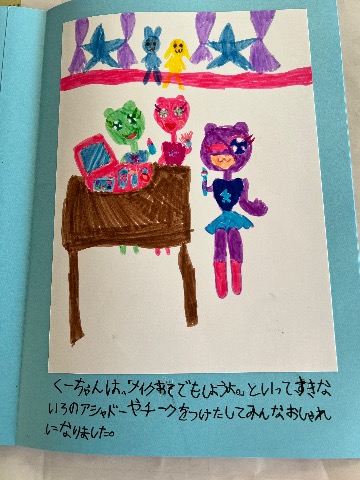 くーちゃんは。「メイクあそでもしようよ。」といってすきな
いろのアシャドーやチークをつけたしてみんなおしゃれ
になりました。